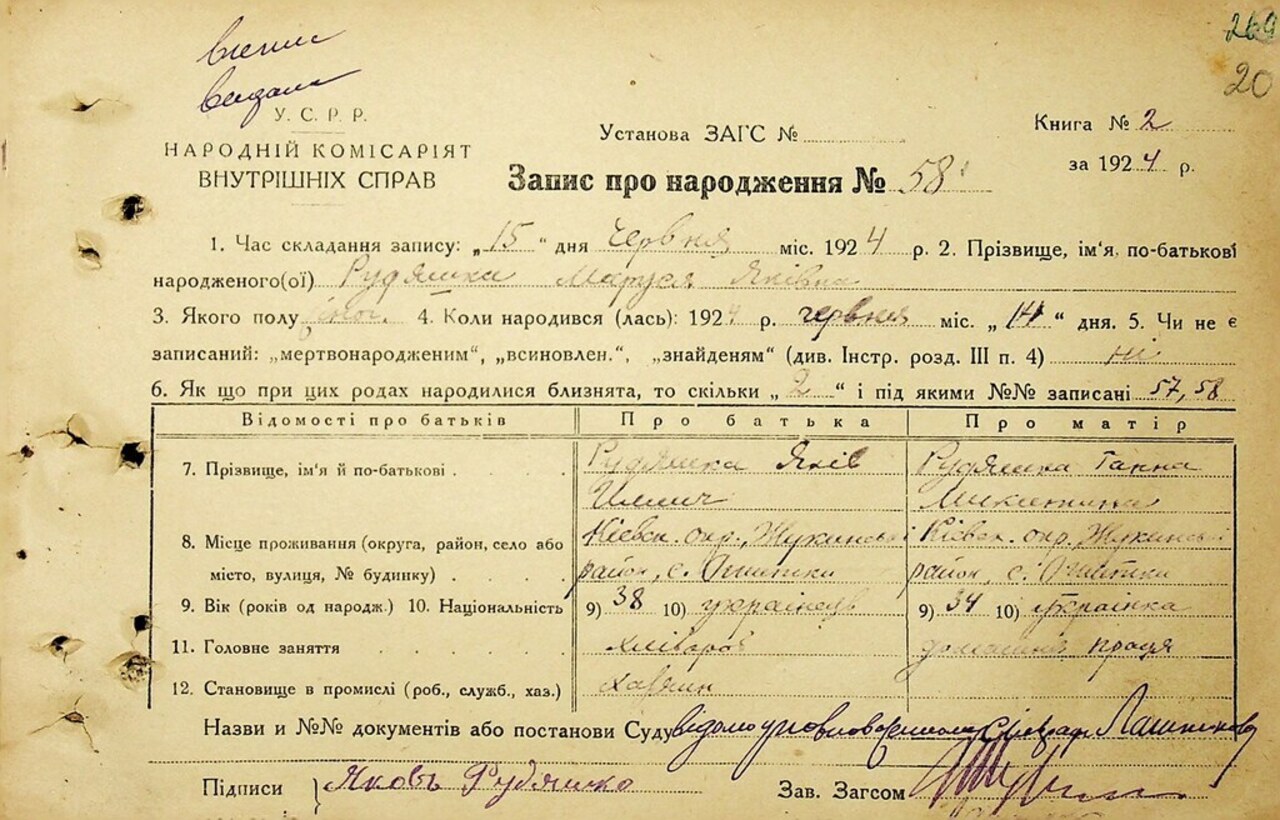 269
20
У. С. Р. Р.
НАРОДНІЙ КОМІСАРІЯТ
ВНУТРІШНІХ СПРАВ
Установа ЗАГС №
Книга № 2
за 1924 р.
Запис про народження № 58
1. Час складання запису: „15“ дня червня міс. 1924 р. 2. Прізвище, ім'я, по-батькові
народженого(ої) Рудяшка Маруся Яківна
3. Якого полу жіноч. 4. Коли народився (лась): 1924 р. червня міс. „14“ дня. 5. Чи не є
записаний: „мертвонародженим“, „всиновлен.“, „знайденям“ (див. Інстр. розд. III п. 4) ні
6. Як що при цих родах народилися близнята, то скільки „2“ і під якими №№ записані 57, 58
Відомості про батьків Про батька Про матір
7. Прізвище, ім'я й по-батькові Рудяшка Яків Рудяшка Ганна
8. Місце проживання (округа, район, село або Київск. окр., Жукинськ Київск. окр., Жукинськ
місто, вулиця, № будинку) район, с. район, с.
9. Вік (років од народж.) 10. Національність 9) 38 10) українець 9) 34 10) Українка
11. Головне заняття хлібароб домашня праця
12. Становище в промислі (роб., служб., хаз.) хазяин
Назви и №№ документів або постанови Суду
Підписи } Яковъ Рудяшко Зав. Загсом